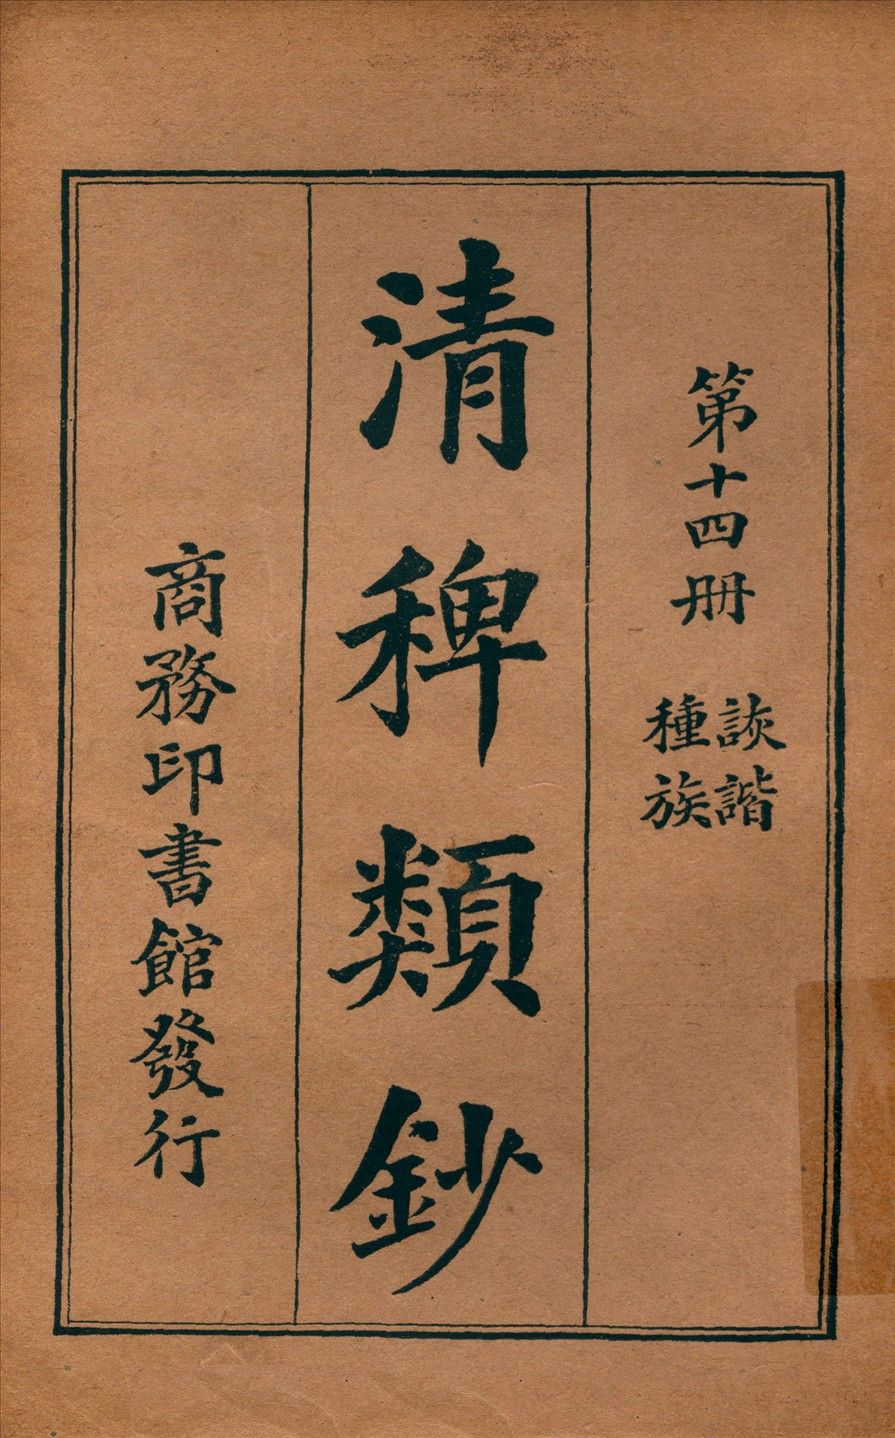 第十四册 詼諧
種族
清稗類鈔
商務印書館發行